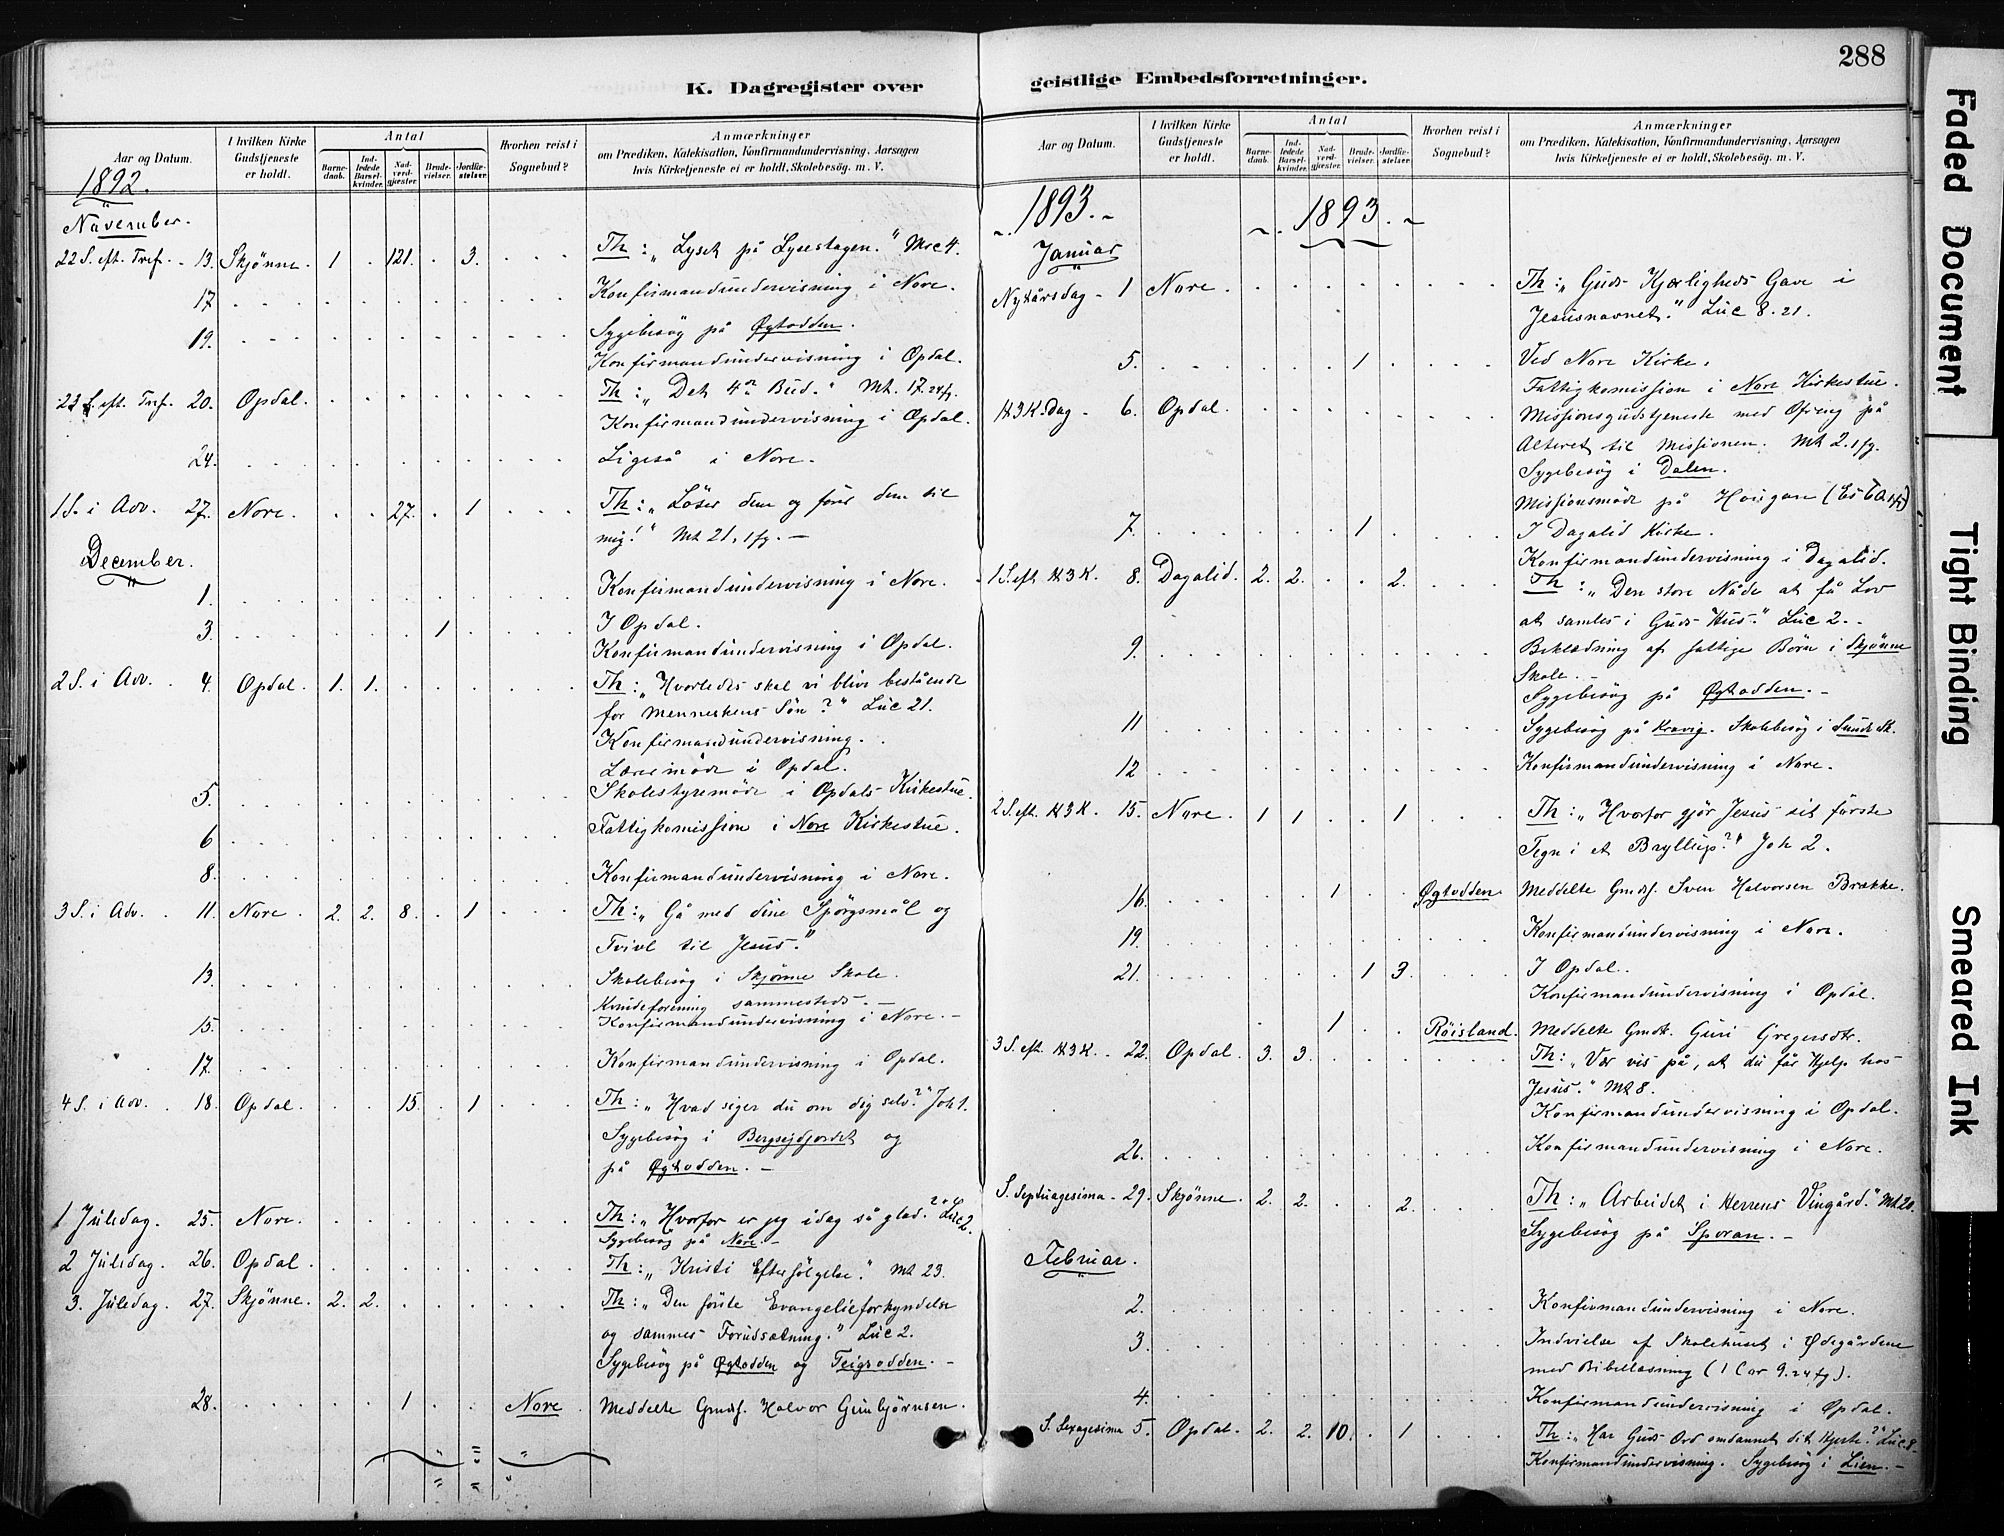 288
K. Dagregister over
geistlige Embedsforretninger.
Aar og Datum.
I hvilken Kirke Gudstjeneste er holdt.
Antal
Barnedaab.
Indledede Barselkvinder.
Nadverdgjæster.
Brudevielser.
Jordfæstelser.
Hvorhen reist i Sognebud?
Anmærkninger
om Prædiken, Katekisation, Konfirmandundervisning, Aarsagen
hvis Kirketjeneste ei er holdt, Skolebesøg. m. V.
1892.
November.
22 S. eft. Tref. - 13. Skjønne. 1 . 121. . 3. Th: „Lyset på Lysestagen." Mrc 4.
17 Konfirmandundervisning i Nore.
19. Sygebesøg på Øgtodden.
Konfirmandundervisning i Opdal.
23 S. eft. Tref. 20. Opdal. Th: „Det 4de Bud." Mt. 17. 24 fg.
Konfirmandundervisning i Opdal.
24. Ligeså i Nore.
1 S. i Adv. 27. Nore. . . 27. . 1 Th: „Løser dem og fører dem til
mig!" Mt 21, 1 fg. —
December.
1. Konfirmandundervisning i Nore.
3. 1 I Opdal.
Konfirmandundervisning i Opdal.
2 S. i Adv. 4. Opdal. 1. 1. Th: „Hvorledes skal vi blive bestående
for Menneskens Søn?" Luc 21.
Konfirmandundervisning.
Læsemøde i Opdal.
5. Skolestyremøde i Opdals Kirkestue.
6 Fattigkomission i Nore Kirkestue.
8. Konfirmandundervisning i Nore.
3 S. i Adv. 11. Nore. 2. 2. 8. . 1 Th: „Gå med dine Spørgsmål og
Tvivl til Jesus."
13. Skolebesøg i Skjønne Skole.
Kvindeforening sammesteds. —
15. Konfirmandundervisning i Nore. —
17. Konfirmandundervisning i Opdal.
4 S. i Adv. 18. Opdal. . . 15. . 1 Th: „Hvad siger du om dig selv?" Joh 1.
Sygebesøg i Bergsejdjordet og
på Øgtodden. —
1 Juledag. 25. Nore. Th: „Hvorfor er jeg idag så glad?" Luc 2.
Sygebesøg på Nore. —
2 Juledag. 26. Opdal. Th: „Kristi Efterfølgelse." Mt 23.
3. Juledag. 27. Skjønne. 2. 2. Th: „Den første Evangelieforkyndelse
og sammes Forudsætning." Luc 2.
Sygebesøg på Øgtodden og Teigsodden. —
28. 1 . . Nore Meddelte Gmdf. Halvor Gunbjørnsen.
Aar og Datum.
I hvilken Kirke Gudstjeneste er holdt.
Antal
Barnedaab.
Indledede Barselkvinder.
Nadverdgjæster.
Brudevielser.
Jordfæstelser.
Hvorhen reist i Sognebud?
Anmærkninger
om Prædiken, Katekisation, Konfirmandundervisning, Aarsagen
hvis Kirketjeneste ei er holdt, Skolebesøg. m. V.
1893. 1893.
Januar
Nytårsdag - 1 Nore. Th: „Guds Kjærligheds Gave i
Jesusnavnet." Luc 8. 21.
5. 1 Ved Nore Kirke.
Fattigkomission i Nore Kirkestue.
H3K-Dag - 6. Opdal. Missionsgudstjeneste med Ofring på
Alteret til Missionen. Mt 2. 1 fg.
Sygebesøg i Dalen.
Missionsmøde på Hougan (Es 60. 1 fg)
7. 1 I Dagalid Kirke.
Konfirmandundervisning i Dagalid.
1 S. eft. H3K. 8. Dagalid. 2. 2. . . 2. Th: „Den store Nåde at få Lov
at samles i Guds Hus." Luc 2. —
9. Beklædning af fattige Børn i Skjønne
Skole. —
Sygebesøg på Øgtodden. —
11 Sygebesøg på Kravig. Skolebesøg i Sunde Sk.
12 Konfirmandundervisning i Nore.
2 S. eft. H3K. 15. Nore. 1 1 . . 1 Th: „Hvorfor gjør Jesus sit første
Tegn i et Bryllup?" Joh 2.
16. 1 . . Øgtodden. Meddelte Gmdf. Sven Halvorsen Brække.
19. Konfirmandundervisning i Nore.
21. 1 3. I Opdal.
Konfirmandundervisning i Opdal.
1 . . Røisland. Meddelte Gmdk. Guri Gregersdtr.
3 S. eft. H3K. 22. Opdal. 3. 3. Th: „Vær vis på, at du får Hjelp hos
Jesus." Mt 8.
Konfirmandundervisning i Opdal.
26. Konfirmandundervisning i Nore.
S. Septuagesima - 29. Skjønne. 2. 2. . . 2. Th: „Arbeidet i Herrens Vingård." Mt 20.
Sygebesøg på Sporan. —
Februar.
2. Konfirmandundervisning i Nore.
3. Indvielse af Skolehuset i Ødegårdene
med Bibellæsning (1 Cor 9. 24 fg).
4. Konfirmandundervisning i Opdal.
S. Sexagesima 5. Opdal. 2. 2. 10. . 1 Th: „Har Guds Ord omdannet dit Hjerte?" Luc 8 —
Konfirmandundervisning. Sygebesøg i Lien. —
Faded Document
Tight Binding
Smeared Ink